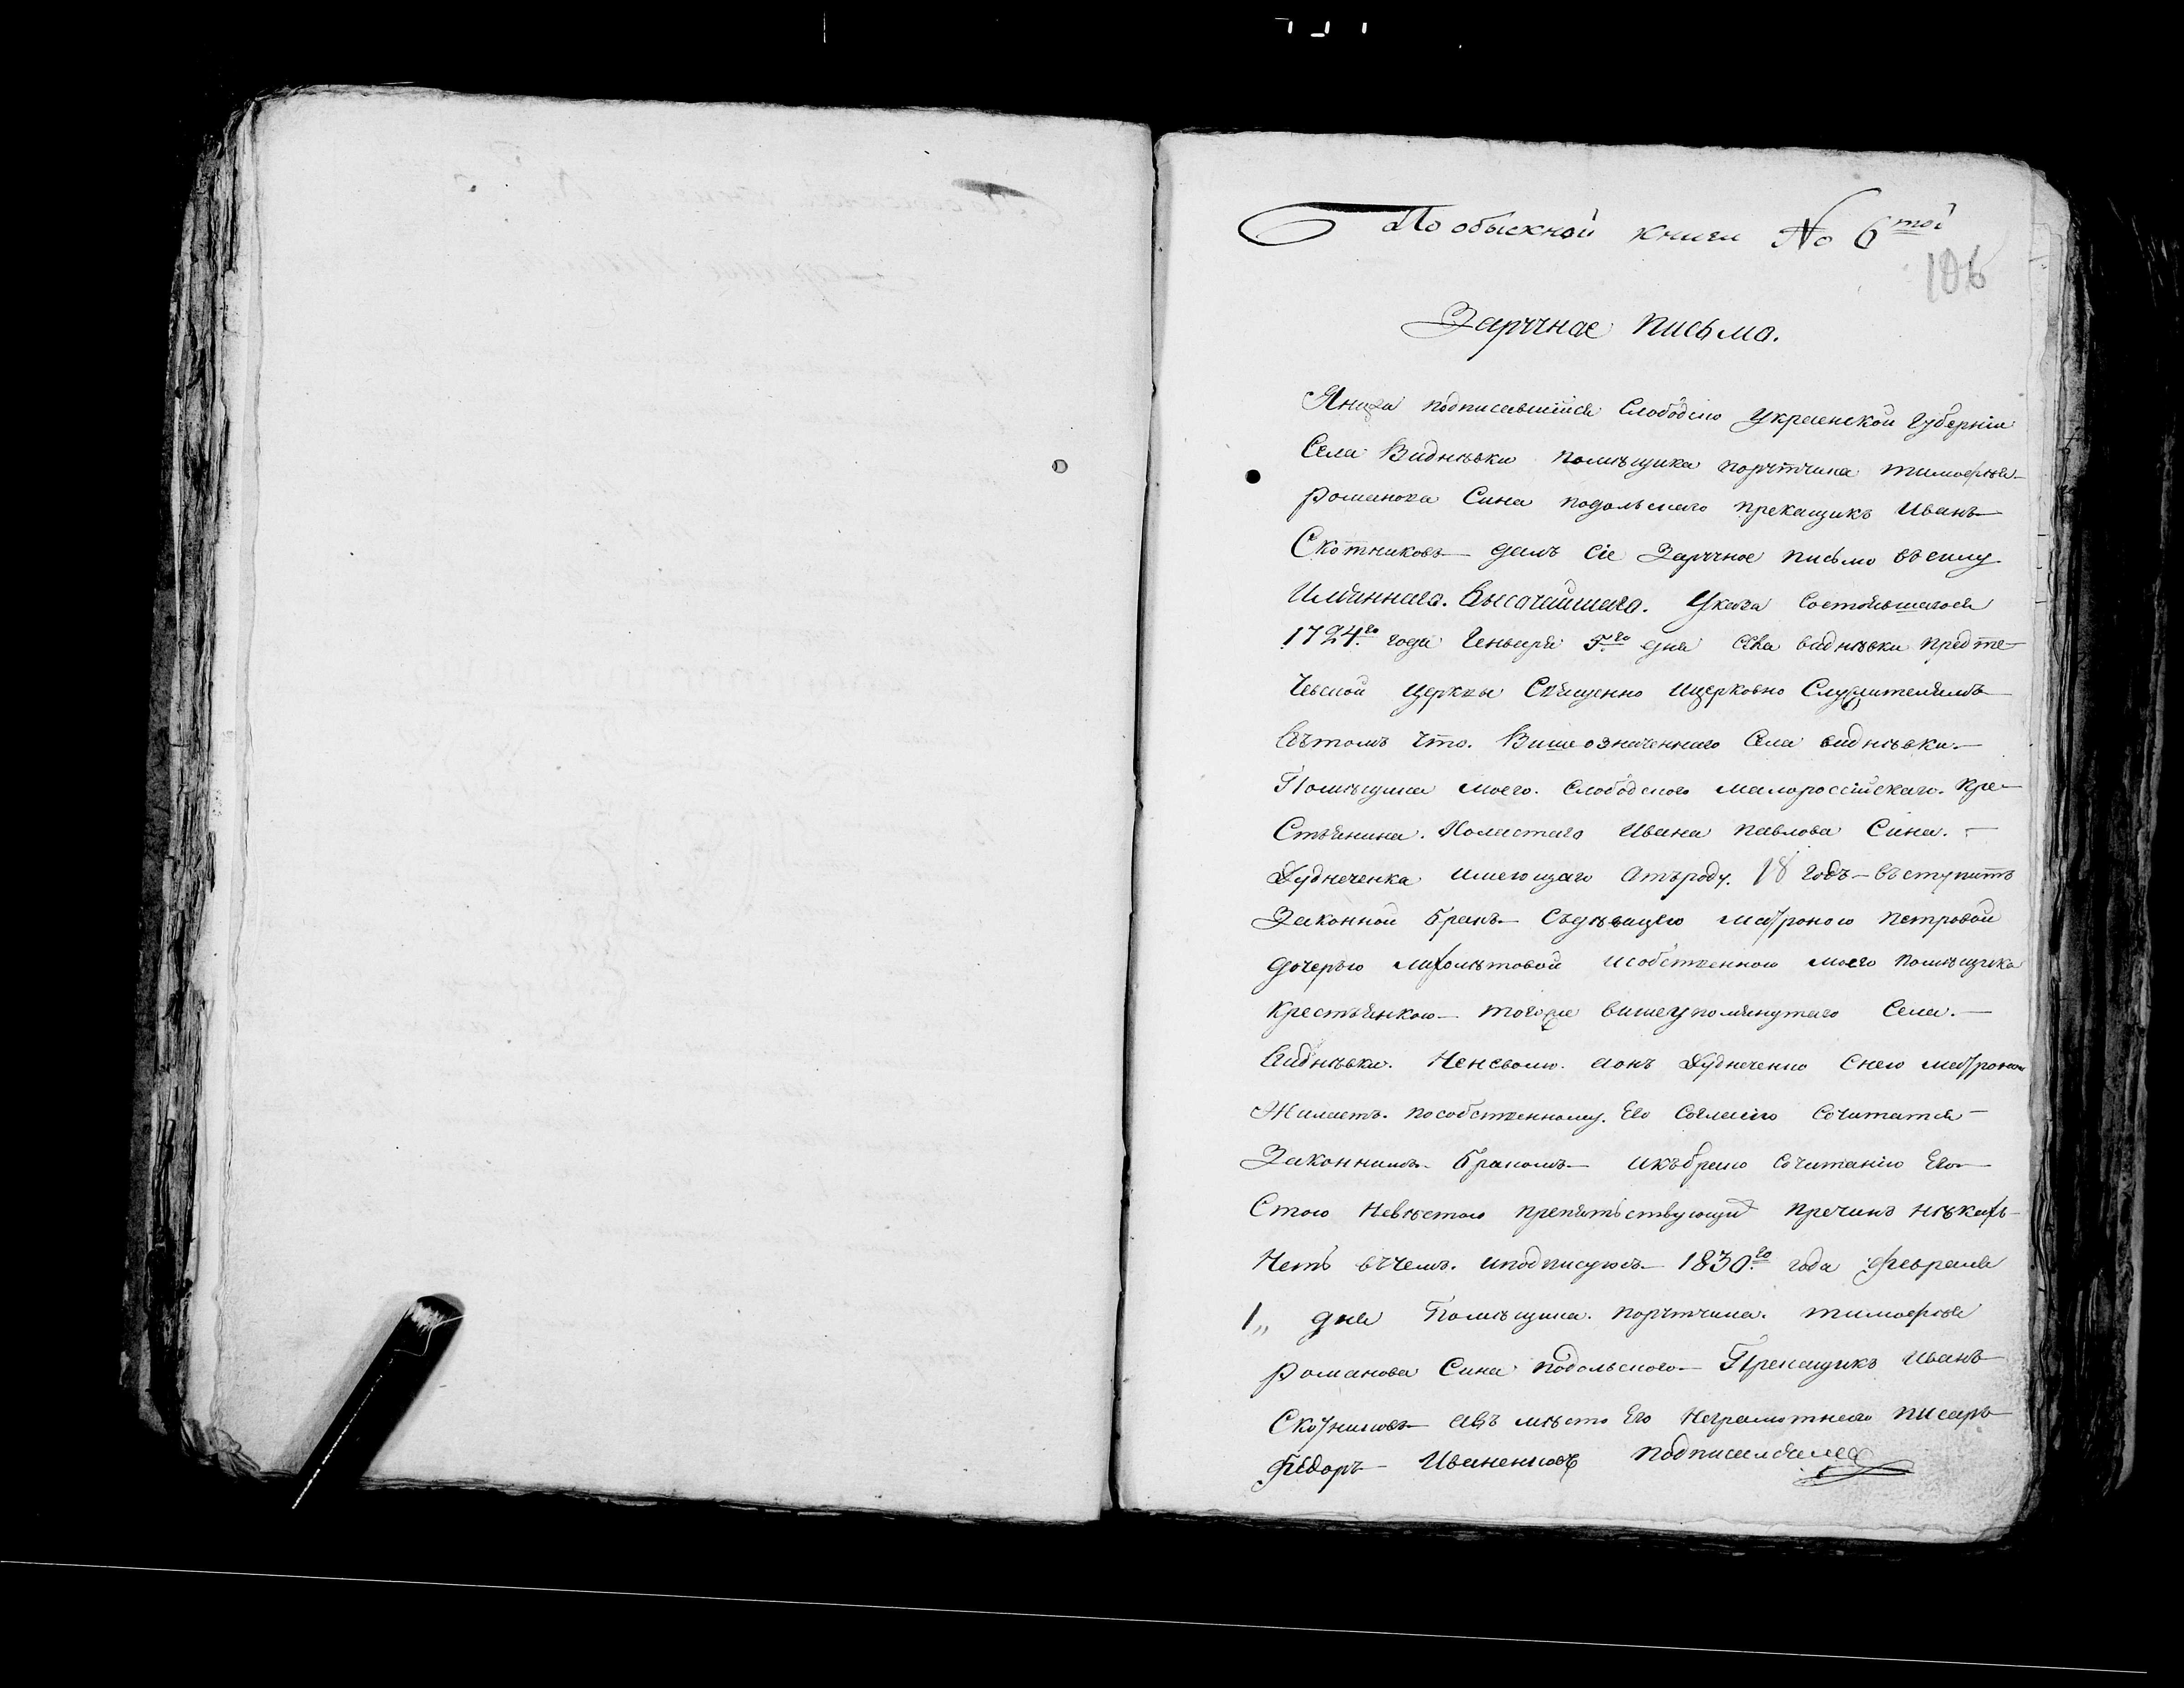 По обыскной книги № 6той
106
Заручное письмо.
Я нижеподписавшійся Слободско Украенской Губерніи
Села Виднѣвки помѣщика порутчика тимоефѣя
романова Сина подольскаго прекащикъ Иванъ
Скотниковъ далъ сіе Заручное письмо въ силу
Имянного. Высочайшаго. Указа Состоявшагося
1724го года Генваря 5го дня Села виднѣвки предте-
чевской церквы Священно ицерковно Служителямъ
Вътомъ что. Вишеозначеннаго Села виднѣвки.
Помѣщика моего. Слободского малороссійскаго. кре-
Стьянина. Холастаго Ивана павлова Сина.
Дудниченка имеющаго Атъроду. 18 годъ въступить
Законной бракъ Съдѣвицею матроною петровой
дочерью исобственною моего помѣщика
крестьянкою тогоже вишеупомянутаго Села.
Виднѣвки. аонъ Дудниченко Снею матроною
Жилаетъ. пособственному. Его Согласію Сочитатся
Законнимъ бракомъ икъбрако Сочитанію Его
Стою Невѣстою препятьствующи пречинъ нѣкахъ
Нетъ въчемъ. иподписуюсь 1830го года февраля
1„ дня Помѣщика. порутчика. тимоефѣя
романова Сина подольского Прекащикъ Иванъ
Скотниковъ авъ мѣсто Его Неграмотнаго писаръ
Фёдоръ Иваненковъ подписался